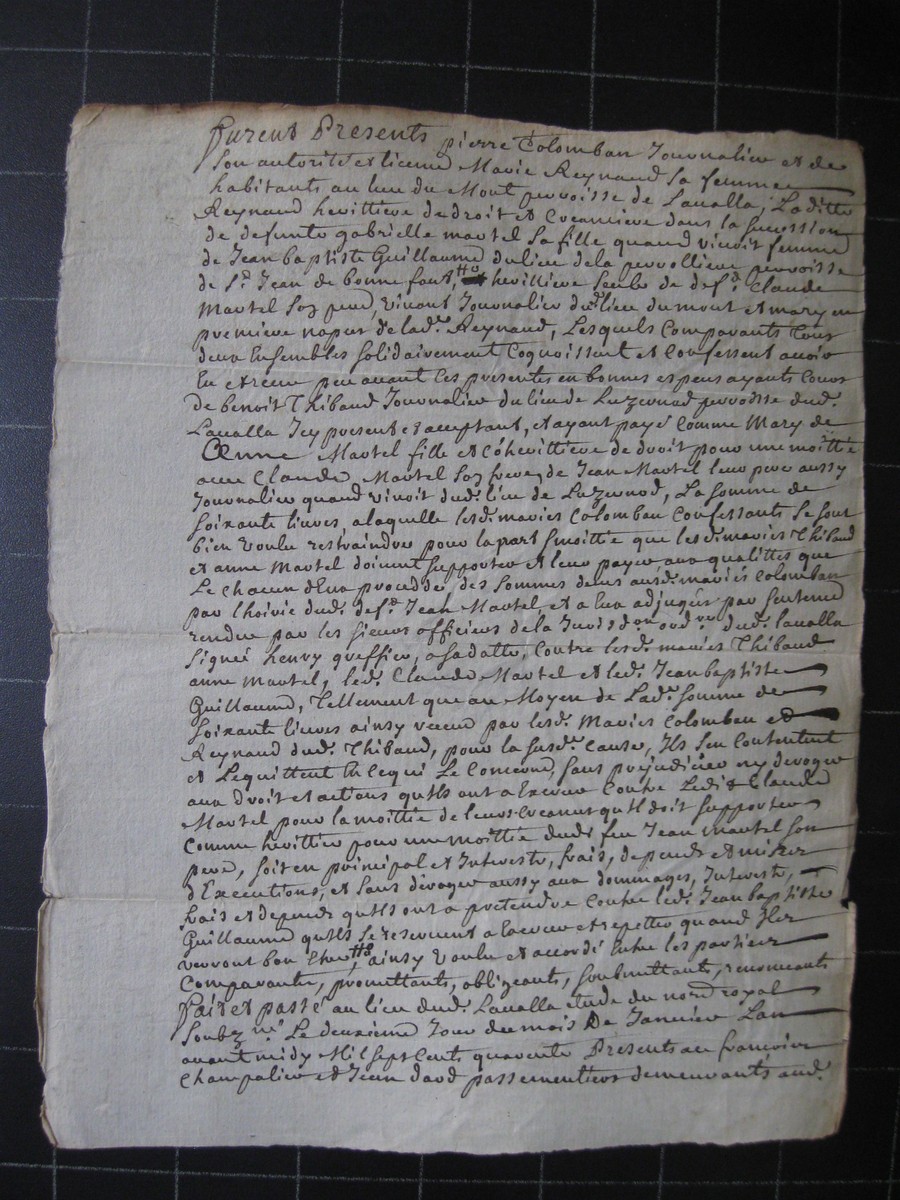 furent Presents pierre Colomban Journalier et de
son autorité et licence Marie Reynaud sa femme
habitants au lieu du Mont parroisse de Lavalla, Laditte
Reynaud herittiere de droit et Creanciere dans la succession
de defunte gabrielle martel sa fille quand vivoit femme
de Jean baptiste Guillaume du lieu de la parroisse
de St. Jean de bonne font, herittiere seule de deft. Claude
Martel son pere, vivant Journalier dud. lieu du mont et mary en
premiere nopces de lad. Reynaud, Lesquels Comparants tous
deux Ensembles solidairement Cognoissent et Confessent avoir
Eu et receu peu avant ces presentes en bonnes especes ayants Cours
de benoit Thibaud Journalier du lieu de Luzernod parroisse dud.
Lavalla Icy present et acceptant, et ayant payé Comme Mary de
Anne Martel fille et Cohérittiere de droit pour une moittié
avec Claude Martel son frere, de Jean Martel leur pere aussy
Journalier quand vivoit dud. lieu de Luzernod, La somme de
soixante livres, a laquelle lesd. mariés Colomban Confessants se sont
bien voulu restraindre pour la part & moittié que lesd. mariés Thibaud
et anne Martel doivent supporter et leur payer aux qualittes que
Le chacun d'Eux procedde des sommes deues ausd. mariés Colomban
par l'hoirie dud. deft. Jean Martel, et a Eux adjugées par sentence
rendue par les sieurs officiers de la Jurisdon. ordre. dud. lavalla
signée henry greffier, a sa datte, Contre lesd. mariés Thibaud
anne Martel, led. Claude Martel et led. Jean baptiste
Guillaume, Tellement que au Moyen de Lad. somme de
soixante livres ainsy receue par lesd. Mariés Colomban et
Reynaud dud. Thibaud, pour la susd. Cause, Ils s'en Contentent
et L'equittent En Ce qui Le Concerne, sans prejudicier ny deroger
aux droit et actions qu'ils ont a Exercer Contre Ledit Claude
Martel pour la moittié de leurs creances qu'il doit supporter
Comme herittier pour une moittié dudt. feu Jean martel son
pere, soit en principal et Interests, frais, depends et mises
d'Executions, et sans déroger aussy aux dommages, Interests,
frais et depends qu'ils ont a pretendre Contre led. Jean baptiste
Guillaume qu'ils se reservent a lacever et repetter quand Ils
verront bon Estre, ainsy voulu et accordé Entre les parties
Comparantes, promettants, obligeants, soubmettants, renonceants
fait et passé au lieu dud. Lavalla etude du nore. royal
soubzné. Le deuxième Jour du mois De Janvier Lan
avant midy Mil sept Cents quarente Presents
Champalier et Jean davd passementiers demeurants aud.